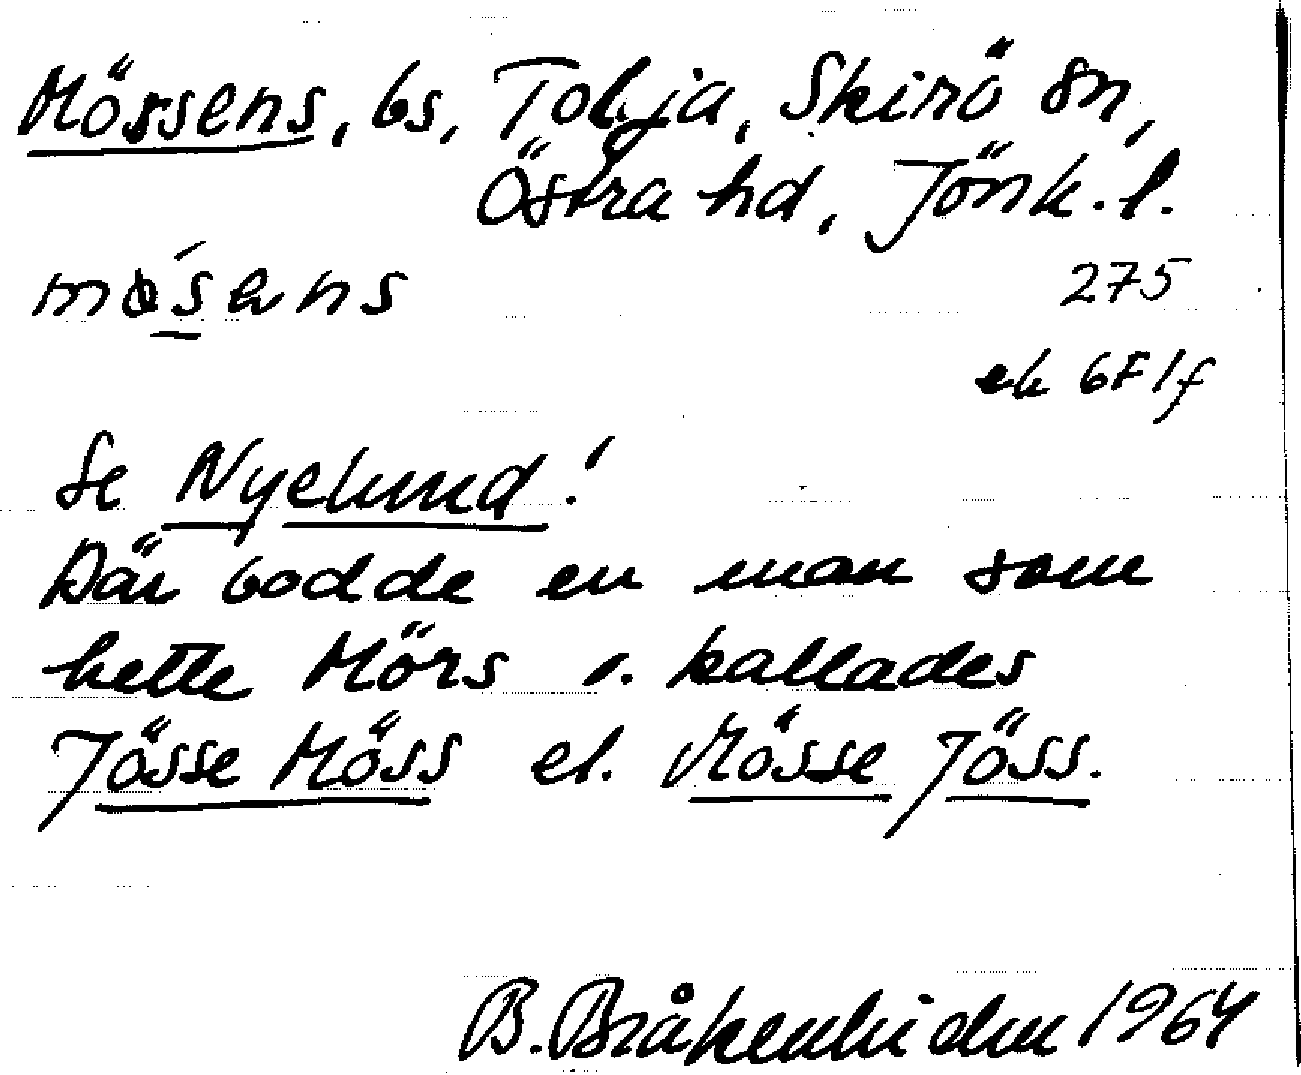 Mörsens, bs, Tolja, Skirö sn,
Östra hd, Jönk. l.
mø̀sens
275
ek 6F1f
Se Nyelund!
Där bodde en man som
hette Mörs o. kallades
Jösse Möss el. Mösse Jöss.
B. Bråkenhielm 1964